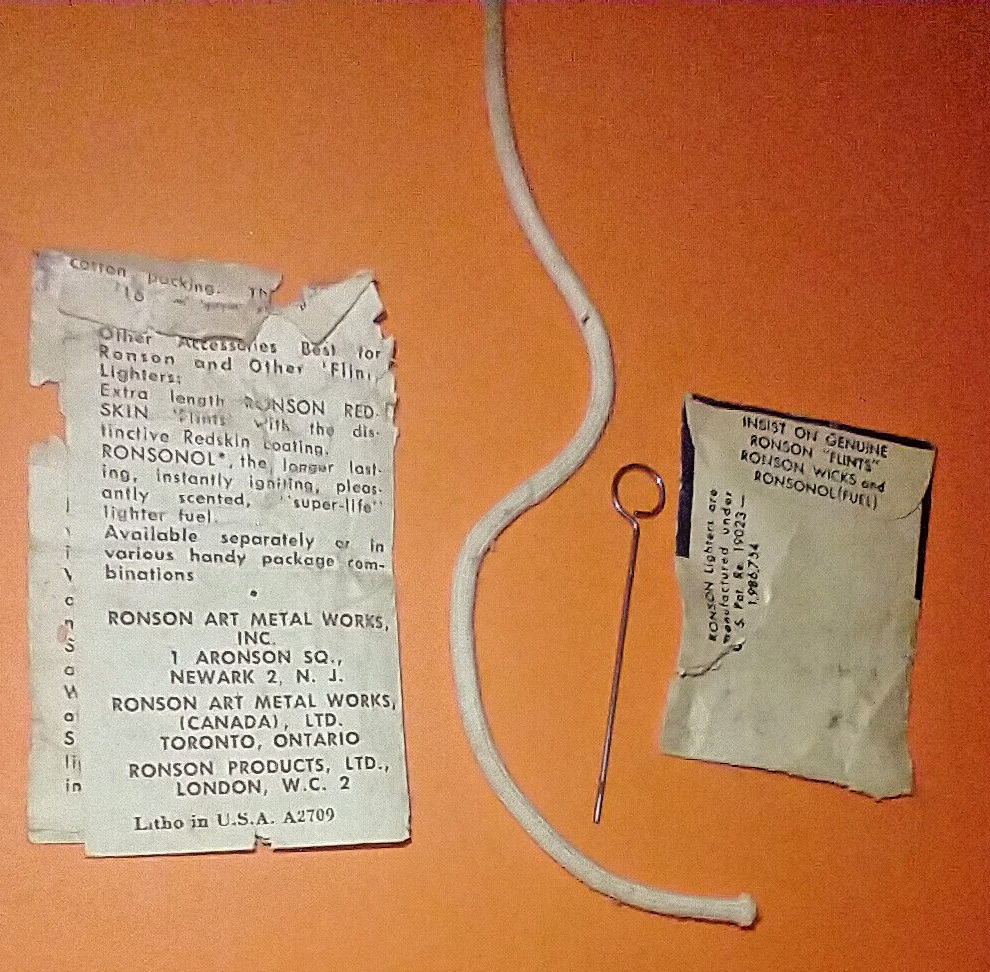 cotton packing. Th
Other Accessories Best for
Ronson and Other "Flint
Lighters:
Extra length RONSON RED-
SKIN 'Flints' with the dis-
tinctive Redskin coating.
RONSONOL*, the longer last-
ing, instantly igniting, pleas-
antly scented, "super-life"
lighter fuel.
Available separately or in
various handy package com-
binations
RONSON ART METAL WORKS,
INC.
1 ARONSON SQ.,
NEWARK 2, N. J.
RONSON ART METAL WORKS,
(CANADA), LTD.
TORONTO, ONTARIO
RONSON PRODUCTS, LTD.,
LONDON, W.C. 2
Litho in U.S.A. A2709
INSIST ON GENUINE
RONSON "FLINTS"
RONSON WICKS and
RONSONOL(FUEL)
RONSON Lighters are
manufactured under
U. S. Pat. Re. 19023—
1,986,754